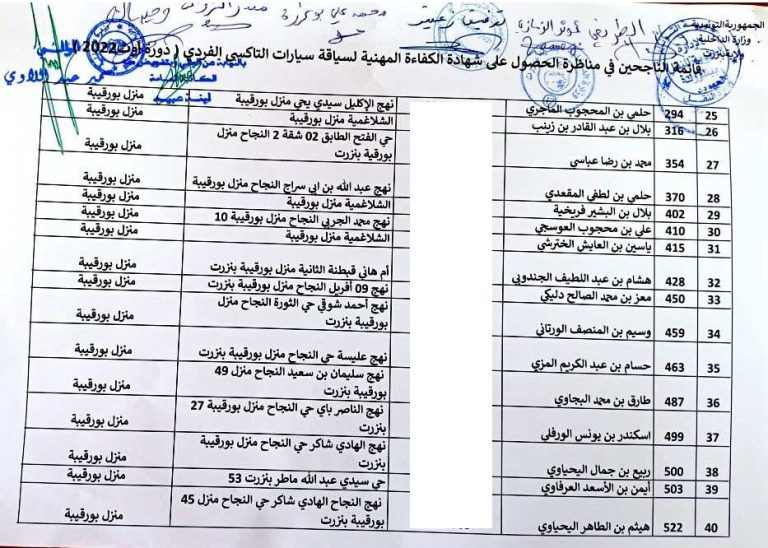 الجمهورية التونسية
وزارة الداخلية
قائمة الناجحين في مناظرة الحصول على شهادة الكفاءة المهنية لسياقة سيارات التاكسي الفردي ( دورة أوت 2022 )
25 294 حلمي بن المحجوب الماجري نهج الإكليل سيدي يحي منزل بورقيبة منزل بورقيبة
26 316 بلال بن عبد القادر بن زينب الشلاغمية منزل بورقيبة منزل بورقيبة
27 354 محمد بن رضا عباسي حي الفتح الطابق 02 شقة 2 النجاح منزل
بورقية بنزرت منزل بورقيبة
28 370 حلمي بن لطفي المقعدي نهج عبد الله بن ابي سراج النجاح منزل بورقيبة منزل بورقيبة
29 402 بلال بن البشير فريخية الشلاغمية منزل بورقيبة منزل بورقيبة
30 410 علي بن محجوب العوسجي نهج محمد الجربي النجاح منزل بورقيبة 10 منزل بورقيبة
31 415 ياسين بن العايش الخترشي الشلاغمية منزل بورقيبة منزل بورقيبة
32 428 هشام بن عبد اللطيف الجندوبي أم هاني قبطنة الثانية منزل بورقيبة بنزرت منزل بورقيبة
33 450 معز بن محمد الصالح دليكي نهج 09 أفريل النجاح منزل بورقيبة بنزرت منزل بورقيبة
34 459 وسيم بن المنصف الورتاني نهج أحمد شوقي حي الثورة النجاح منزل
بورقيبة بنزرت منزل بورقيبة
35 463 حسام بن عبد الكريم المزي نهج عليسة حي النجاح منزل بورقيبة بنزرت منزل بورقيبة
36 487 طارق بن محمد البجاوي نهج سليمان بن سعيد النجاح منزل 49
بورقيبة بنزرت منزل بورقيبة
37 499 اسكندر بن يونس الورفلي نهج الناصر باي حي النجاح منزل بورقيبة 27
بنزرت منزل بورقيبة
38 500 ربيع بن جمال اليحياوي نهج الهادي شاكر حي النجاح منزل بورقيبة
بنزرت منزل بورقيبة
39 503 أيمن بن الأسعد العرفاوي حي سيدي عبد الله ماطر بنزرت 53 منزل بورقيبة
40 522 هيثم بن الطاهر اليحياوي نهج النجاح الهادي شاكر حي النجاح منزل 45
بورقيبة بنزرت منزل بورقيبة